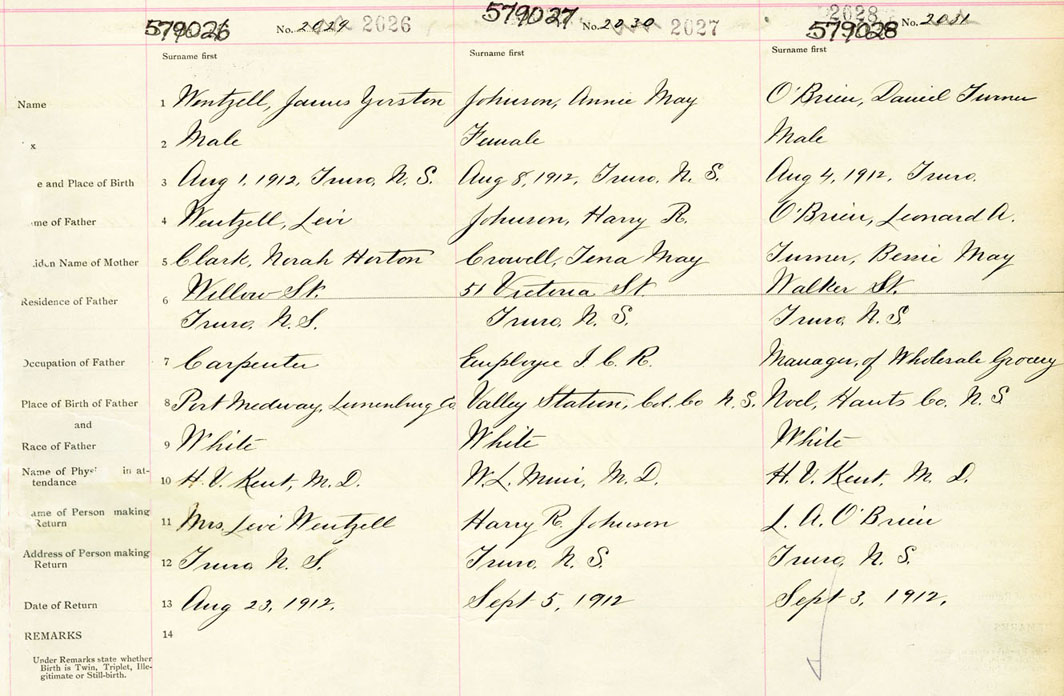 579026 No. 2029 2026 579027 No. 2030 2027 2028 579028 No. 2031
Surname first Surname first Surname first
Name 1 Wentzell, James Yorston Johnson, Annie May O'Brien, Daniel Turner
x 2 Male Female Male
e and Place of Birth 3 Aug 1, 1912, Truro, N. S. Aug 8, 1912, Truro, N. S. Aug 4, 1912, Truro.
me of Father 4 Wentzell, Levi Johnson, Harry R. O'Brien, Leonard A.
iden Name of Mother 5 Clark, Norah Horton Crowell, Tena May Turner, Bessie May
Residence of Father 6 Willow St. 51 Victoria St. Walker St.
Truro, N. S. Truro, N. S. Truro, N. S.
Occupation of Father 7 Carpenter Employee I. C. R. Manager, of Wholesale Grocery
Place of Birth of Father 8 Port Medway, Lunenburg Co. Valley Station, Col. Co N. S. Noel, Hants Co. N. S.
and
Race of Father 9 White White White
Name of Phys in at-
tendance 10 H. V. Kent, M. D. W. L. Muir, M. D. H. V. Kent, M. D.
ame of Person making
Return 11 Mrs. Levi Wentzell Harry R. Johnson L. A. O'Brien
Address of Person making
Return 12 Truro N. S. Truro, N. S. Truro, N. S.
Date of Return 13 Aug 23, 1912. Sept 5, 1912 Sept 3, 1912.
REMARKS 14
Under Remarks state whether
Birth is Twin, Triplet, Ille-
gitimate or Still-birth.